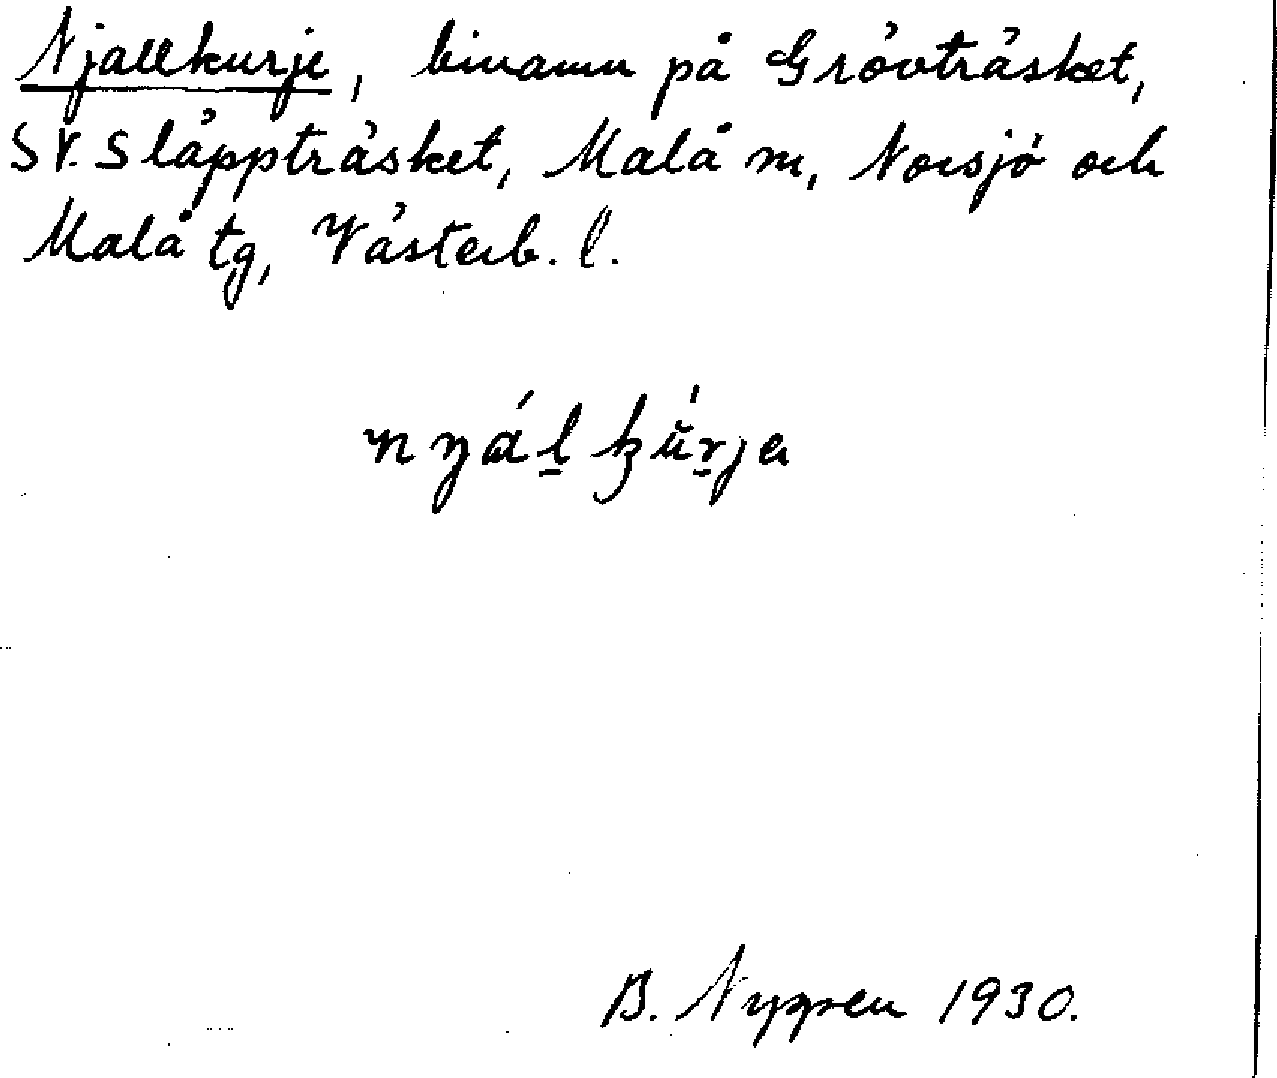 Njallkurje, binamn på Grövträsket,
SV. Släppträsket, Malå m, Norsjö och
Malå tg, Västerb. l.
nyál̠kŭ́r̠ja
B. Nyppen 1930.